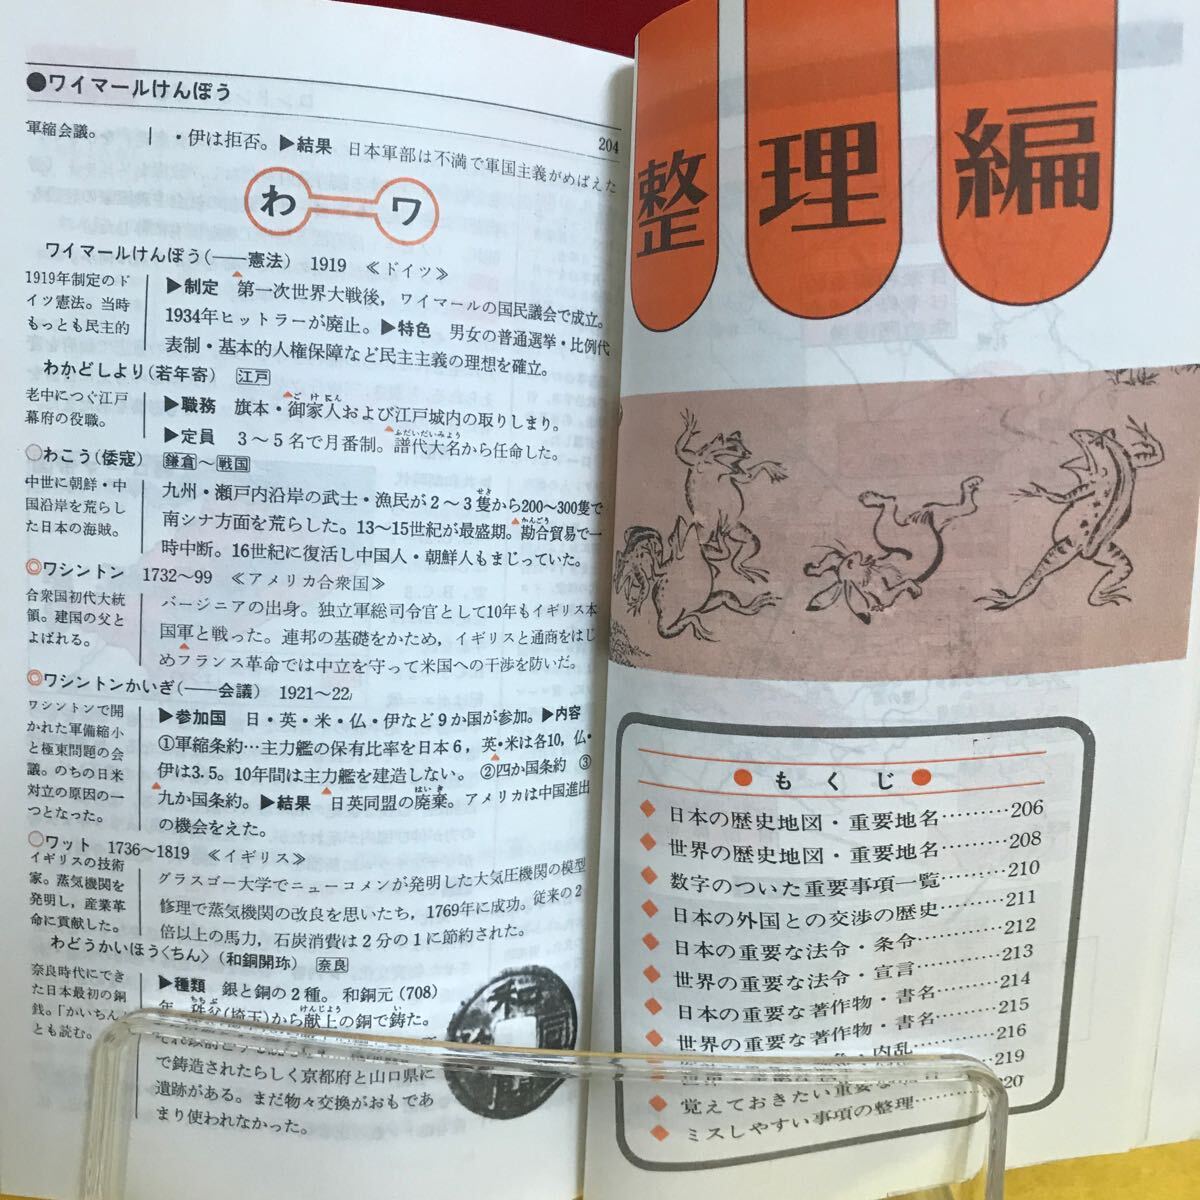 ●ワイマールけんぽう
204
軍縮会議。
・伊は拒否。▶結果 日本軍部は不満で軍国主義がめばえた
わ ワ
ワイマールけんぽう(——憲法) 1919 ≪ドイツ≫
1919年制定のド
イツ憲法。当時
もっとも民主的
▶制定 第一次世界大戦後，ワイマールの国民議会で成立。
1934年ヒットラーが廃止。▶特色 男女の普通選挙・比例代
表制・基本的人権保障など民主主義の理想を確立。
わかどしより(若年寄) 江戸
老中につぐ江戸
幕府の役職。
▶職務 旗本・御家人および江戸城内の取りしまり。
▶定員 3〜5名で月番制。譜代大名から任命した。
○わこう(倭寇) 鎌倉〜戦国
中世に朝鮮・中
国沿岸を荒らし
た日本の海賊。
九州・瀬戸内沿岸の武士・漁民が2〜3隻から200〜300隻で
南シナ方面を荒らした。13〜15世紀が最盛期。勘合貿易で一
時中断。16世紀に復活し中国人・朝鮮人もまじっていた。
◎ワシントン 1732〜99 ≪アメリカ合衆国≫
合衆国初代大統
領。建国の父と
よばれる。
バージニアの出身。独立軍総司令官として10年もイギリス本
国軍と戦った。連邦の基礎をかため，イギリスと通商をはじ
めフランス革命では中立を守って米国への干渉を防いだ。
◎ワシントンかいぎ(——会議) 1921〜22
ワシントンで開
かれた軍備縮小
と極東問題の会
議。のちの日米
対立の原因の一
つとなった。
▶参加国 日・英・米・仏・伊など9か国が参加。▶内容
①軍縮条約…主力艦の保有比率を日本6，英・米は各10，仏・
伊は3.5。10年間は主力艦を建造しない。②四か国条約 ③
九か国条約。▶結果 日英同盟の廃棄。アメリカは中国進出
の機会をえた。
○ワット 1736〜1819 ≪イギリス≫
イギリスの技術
家。蒸気機関を
発明し，産業革
命に貢献した。
グラスゴー大学でニューコメンが発明した大気圧機関の模型
修理で蒸気機関の改良を思いたち，1769年に成功。従来の2
倍以上の馬力，石炭消費は2分の1に節約された。
わどうかいほう〈ちん〉(和銅開珎) 奈良
奈良時代にでき
た日本最初の銅
銭。「かいちん」
とも読む。
▶種類 銀と銅の2種。和銅元(708)
年，秩父(埼玉)から献上の銅で鋳た。
で鋳造されたらしく京都府と山口県に
遺跡がある。まだ物々交換がおもであ
まり使われなかった。
整理編
●もくじ●
◆日本の歴史地図・重要地名………206
◆世界の歴史地図・重要地名………208
◆数字のついた重要事項一覧………210
◆日本の外国との交渉の歴史………211
◆日本の重要な法令・条令………212
◆世界の重要な法令・宣言………213
◆日本の重要な著作物・書名………214
◆世界の重要な著作物・書名………215
・内乱………216
219
◆覚えておきたい重要な 220
◆ミスしやすい事項の整理………